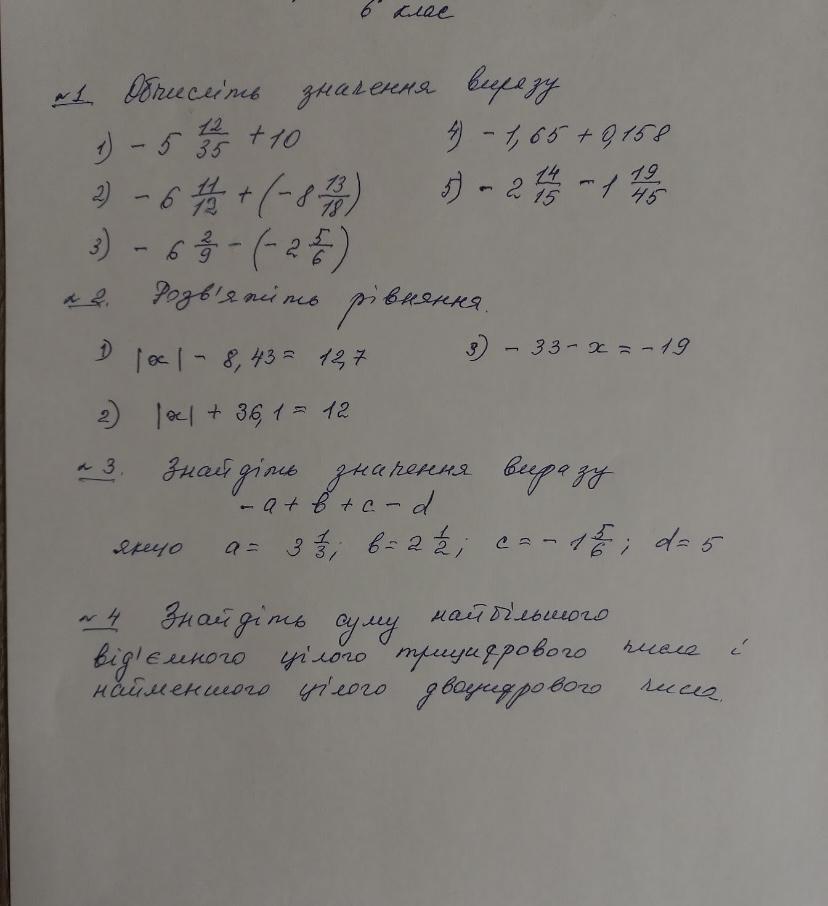 6 клас
№1 Обчисліть значення виразу
1) - 5 12/35 + 10
4) - 1,65 + 0,158
2) - 6 11/12 + (- 8 13/18)
5) - 2 14/15 - 1 19/45
3) - 6 2/9 - (- 2 5/6)
№2. Розв'яжіть рівняння.
1) |x| - 8,43 = 12,7
3) - 33 - x = - 19
2) |x| + 36,1 = 12
№3. Знайдіть значення виразу
- a + b + c - d
якщо a = 3 1/3; b = 2 1/2; c = - 1 5/6; d = 5
№4 Знайдіть суму найбільшого
від'ємного цілого трицифрового числа і
найменшого цілого двоцифрового числа.